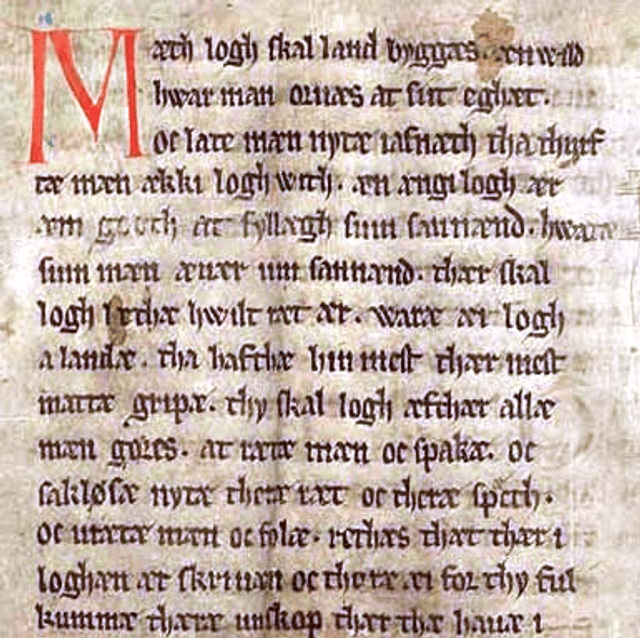 Mæth logh skal land byggæs. æn wild
hwar man oruæs at sit eghæt.
oc late mæn nytæ iafnæth tha thyrf
tæ mæn ækki logh with. æn ængi logh ær
æm gooth at fyllægh sum sannænd. hwaræ
sum mæn æuær um sannænd. thær skal
logh lethæ hwilt ræt ær. waræ æi logh
a landæ. tha hafthæ hin mest thær mest
mattæ gripæ. thy skal logh æfthær allæ
mæn gøres. at rætæ mæn oc spakæ. oc
sakløsæ nytæ theræ ræt oc theræ spech.
oc urætæ mæn oc folæ. rethæs that thær i
loghæn ær skriuan oc thoræ æi for thy ful
kummæ theræ unskop thær thæ hauæ i